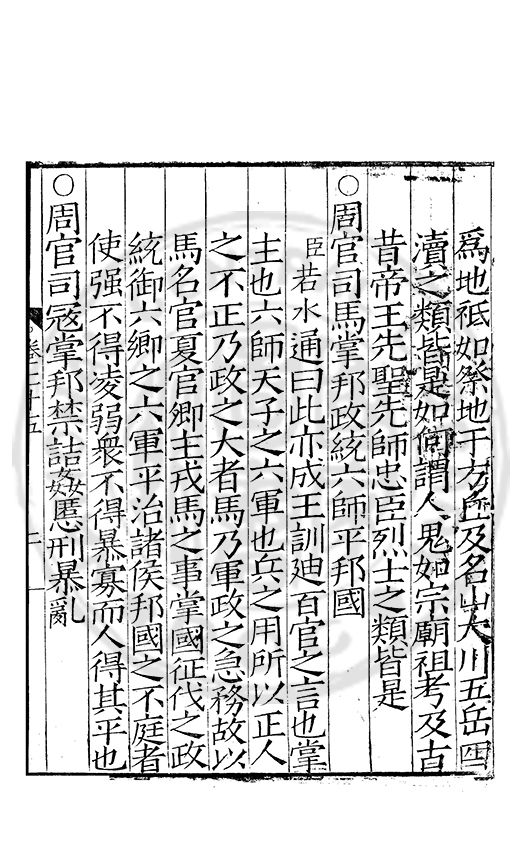 爲地祗如祭地于方丘及名山大川五岳四
瀆之類皆是如何謂人鬼如宗廟祖考及古
昔帝王先聖先師忠臣烈士之類皆是
○周官司馬掌邦政統六師平邦國
臣若水通曰此亦成王訓廸百官之言也掌
主也六師天子之六軍也兵之用所以正人
之不正乃政之大者馬乃軍政之急務故以
馬名官夏官卿主戎馬之事掌國征伐之政
統御六鄉之六軍平治諸侯邦國之不庭者
使强不得凌弱衆不得暴寡而人得其平也
○周官司寇掌邦禁詰姦慝刑暴亂
卷二十五